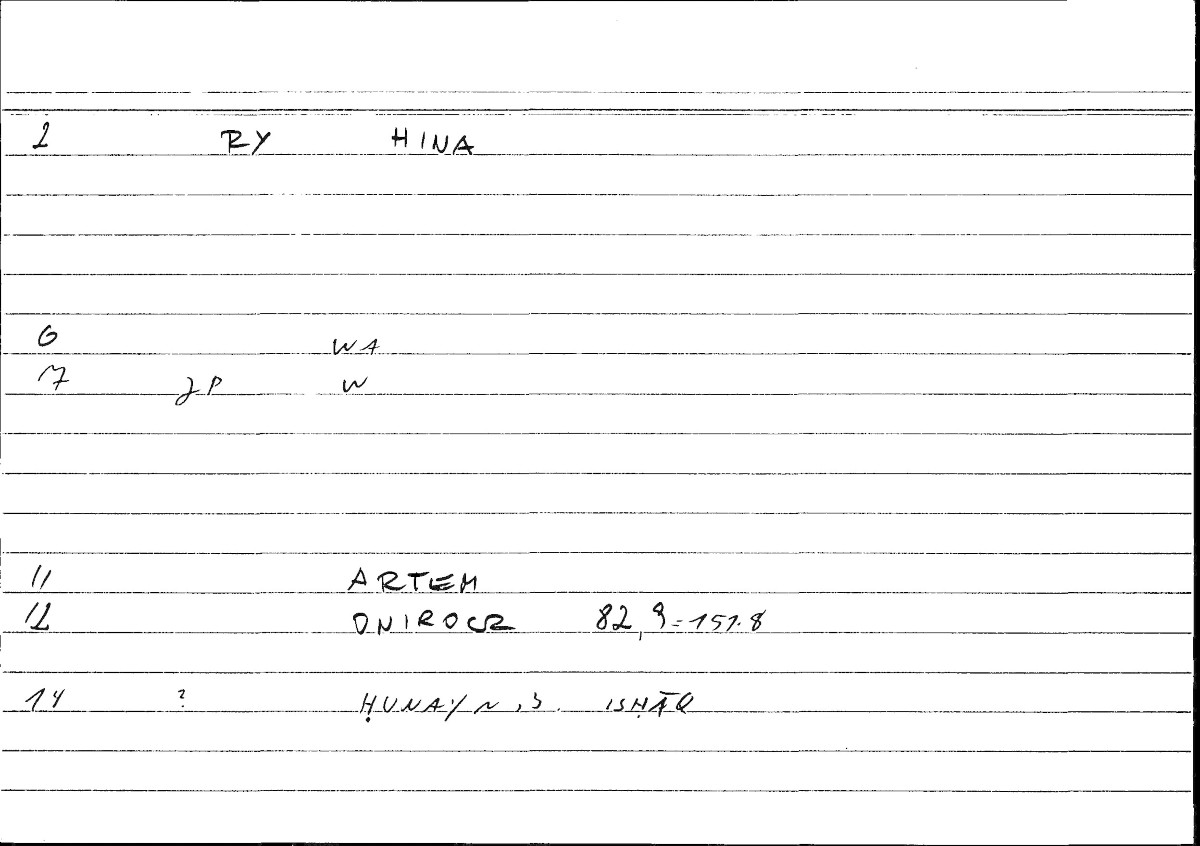 2 RY HINA
6 WA
7 JP W
11 ARTEM
12 ONIROCR 82,9=151.8
14 ? ḤUNAYN ,B. ISḤĀQ